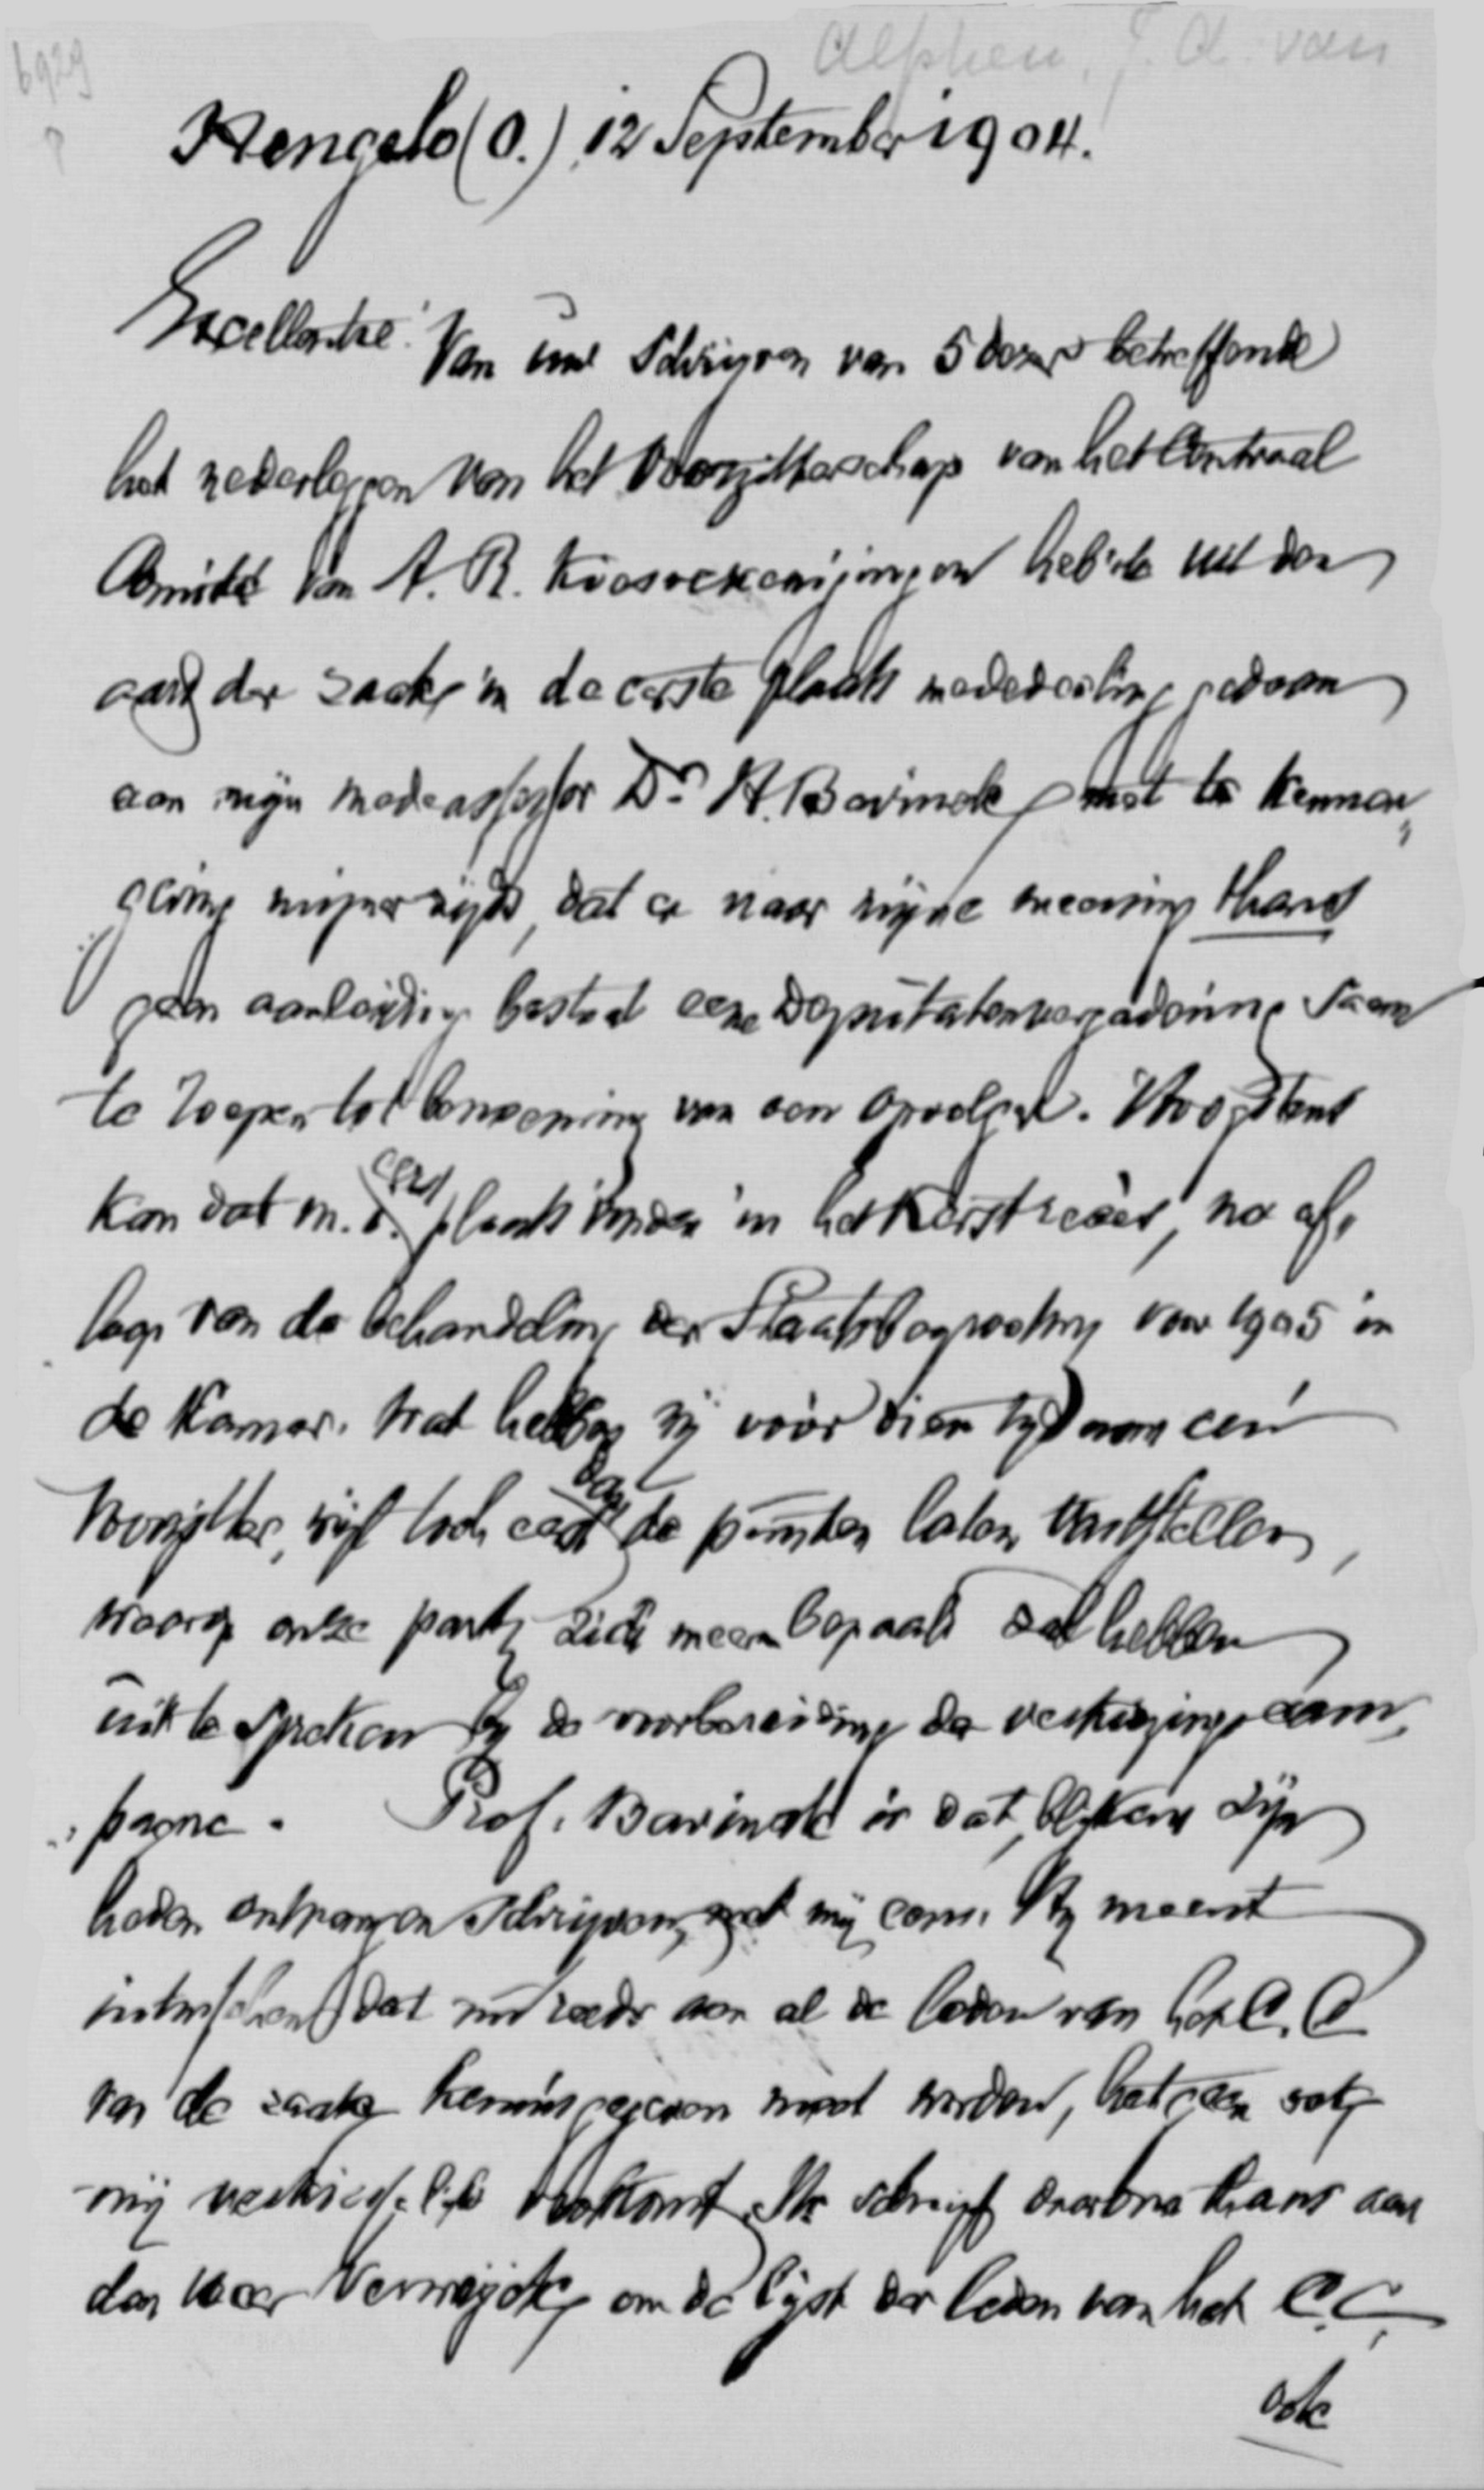 6929
Alphen, J. A. van
Hengelo (O.), 12 September 1904.
Excellentie! Van uw schrijven van 5 dezer betreffende
het nederleggen van het Voorzitterschap van het Centraal
Comité van A. R. Kiesvereenijingen heb ik uit den
aard der zaak in de eerste plaats mededeeling gedaan
aan mijn medeassessor Dr. H. Bavinck, met te kennen„
geving mijnerzijds, dat er naar mijne meening thans
geen aanleiding bestaat eene Deputatenvergadering saam
te roepen tot benoeming van een opvolger. Hoogstens
kan dat m. i. eerst plaats vinden in het Kerstreces, na af„
loop van de behandeling der Staatsbegrooting voor 1905 in
de Kamer. Wat hebben wij vóór dien tyd aan een
Voorzitter, wijl toch eerst dan de punten laten vaststellen,
waarop onze party zich meer bepaald zal hebben
uit te spreken by de voorbereiding der verkiezingscam„
„pagne. Prof. Bavinck is dat, blykens zijn
heden ontvangen schrijven, met mij eens. Hy meent
intusschen dat nu reeds aan al de leden van het C. C.
van de zaak kennis gegeven moet worden, hetgeen ook
mij verkieslijk voorkomt. Ik schrijf daarom thans aan
den Heer Verweijck, om de lijst der leden van het C. C.,
ook